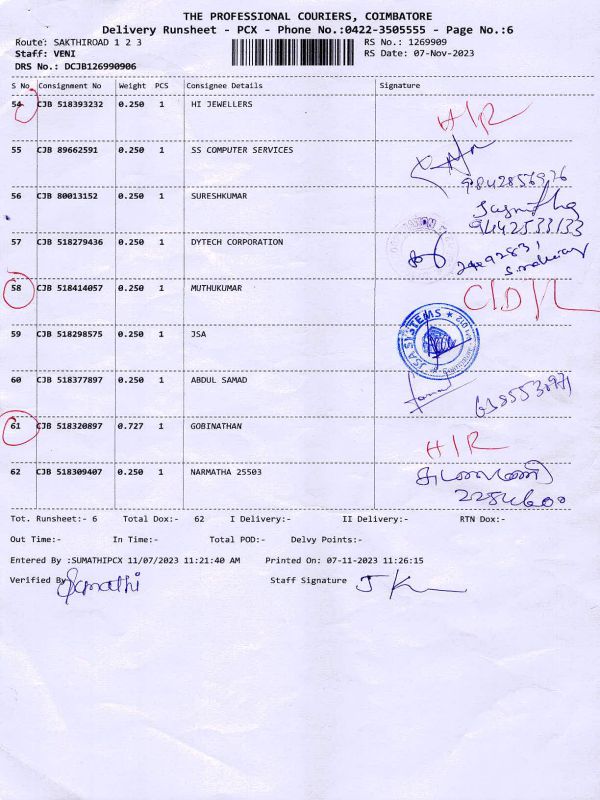 THE PROFESSIONAL COURIERS, COIMBATORE
Delivery Runsheet - PCX - Phone No.:0422-3505555 - Page No.:6
Route: SAKTHIROAD 1 2 3 RS No.: 1269909
Staff: VENI RS Date: 07-Nov-2023
DRS No.: DCJB126990906
S No. Consignment No Weight PCS Consignee Details Signature
54 CJB 518393232 0.250 1 HI JEWELLERS H/R
55 CJB 89662591 0.250 1 SS COMPUTER SERVICES
9842856926
56 CJB 80013152 0.250 1 SURESHKUMAR
9442533133
57 CJB 518279436 0.250 1 DYTECH CORPORATION
58 CJB 518414057 0.250 1 MUTHUKUMAR
59 CJB 518298575 0.250 1 JSA JSA SYSTEMS
60 CJB 518377897 0.250 1 ABDUL SAMAD
61 CJB 518320897 0.727 1 GOBINATHAN H/R
62 CJB 518309407 0.250 1 NARMATHA 25503
2284600
Tot. Runsheet:- 6 Total Dox:- 62 I Delivery:- II Delivery:- RTN Dox:-
Out Time:- In Time:- Total POD:- Delvy Points:-
Entered By :SUMATHIPCX 11/07/2023 11:21:40 AM Printed On: 07-11-2023 11:26:15
Verified By Staff Signature